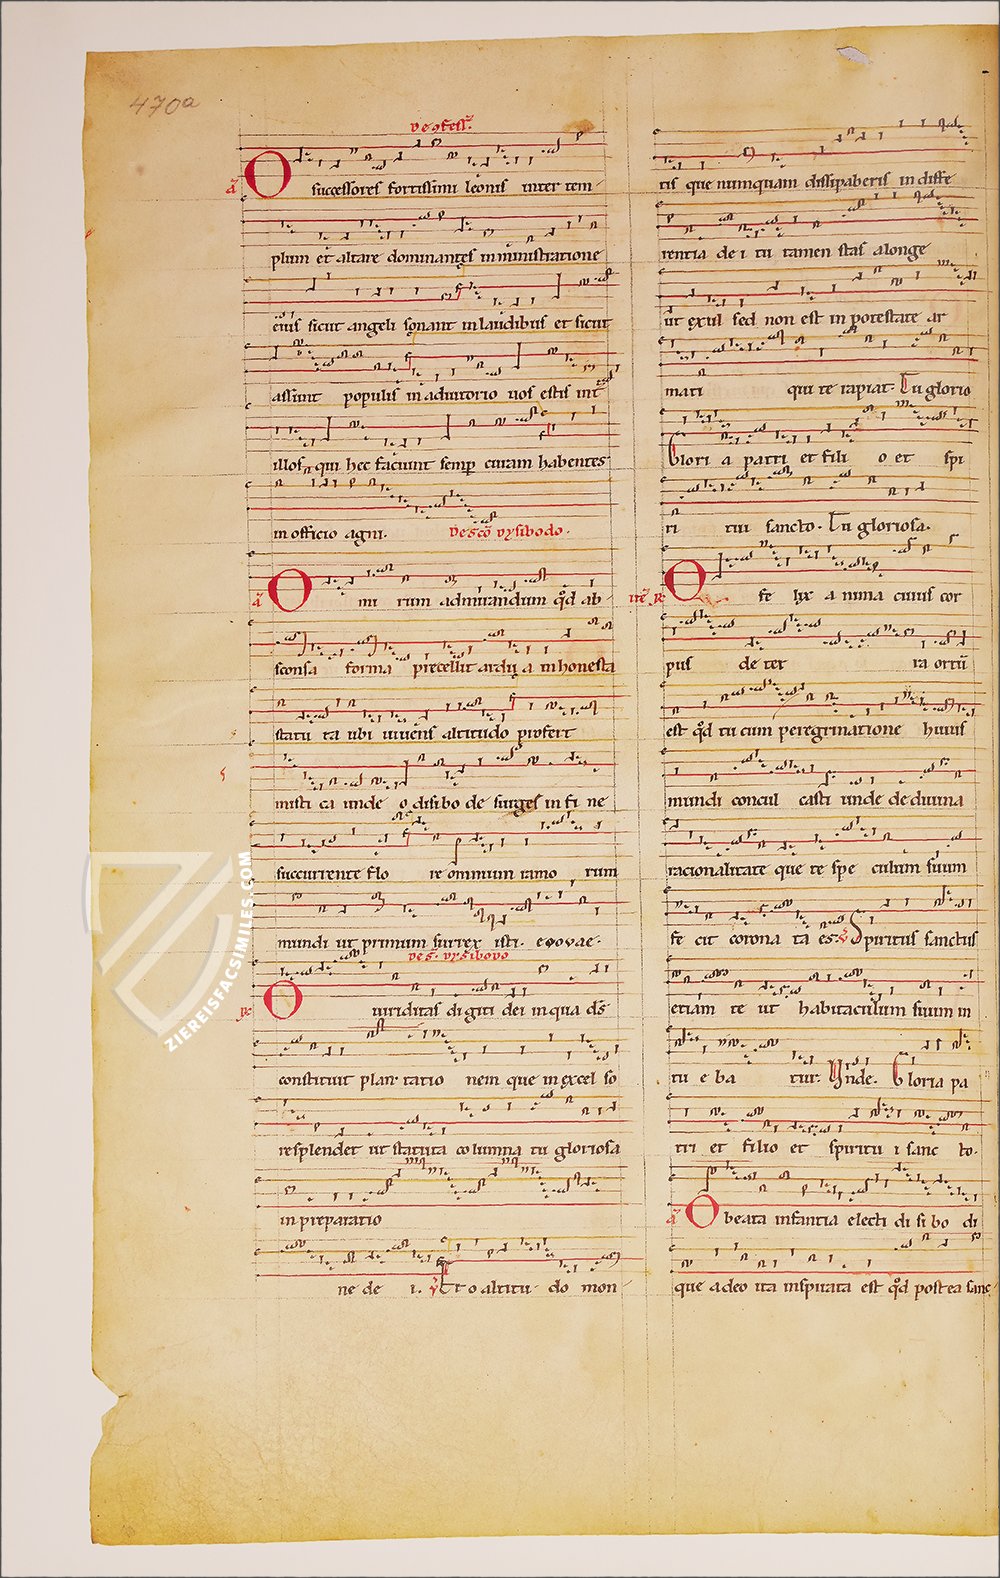 470a
de ꝯfess̄.
ā O successores fortissimi leonis inter tem-
plum et altare dominantes in ministratione
eius sicut angeli sonant in laudibus et sicut
assunt populis in adiutorio uos estis int̄
illos. qui hec faciunt semp̄ curam habentes
in officio agni.
De sc̄o dysibodo.
ā O mi rum admirandum qd̊ ab-
sconsa forma precellit ardu a in honesta
statu ra ubi uiuens altitudo profert
misti ca unde o disibo de surges in fi ne
succurrente flo re omnium ramo rum
mundi ut primum surrex isti. euouae.
de s. dysibodo
ꝶ O uiriditas digiti dei in qua ds̄
constituit plan tatio nem que in excel so
resplendet ut statuta columna tu gloriosa
in preparatio
ne de i. ꝟ Et o altitu- do mon-
tis que numquam dissipaberis in diffe
rentia de i tu tamen stas alonge
ut exul sed non est in potestate ar
mati qui te rapiat. Tu glorio
Glori a patri et fili o et spi
ri tui sancto. Tu gloriosa.
itē ꝶ O fe lix a nima cuius cor
pus de ter ra ortū
est qd̊ tu cum peregrinatione huius
mundi concul casti unde de diuina
racionalitate que te spe culum suum
fe cit corona ta es. ꝟ Spiritus sanctus
etiam te ut habitaculum suum in
tu e ba tur. Unde. Gloria pa
tri et filio et spiritu i sanc to.
ā O beata infantia electi di si bo di
que a deo ita inspirata est qd̊ postea sanc-
ZIEREISFACSIMILES.COM